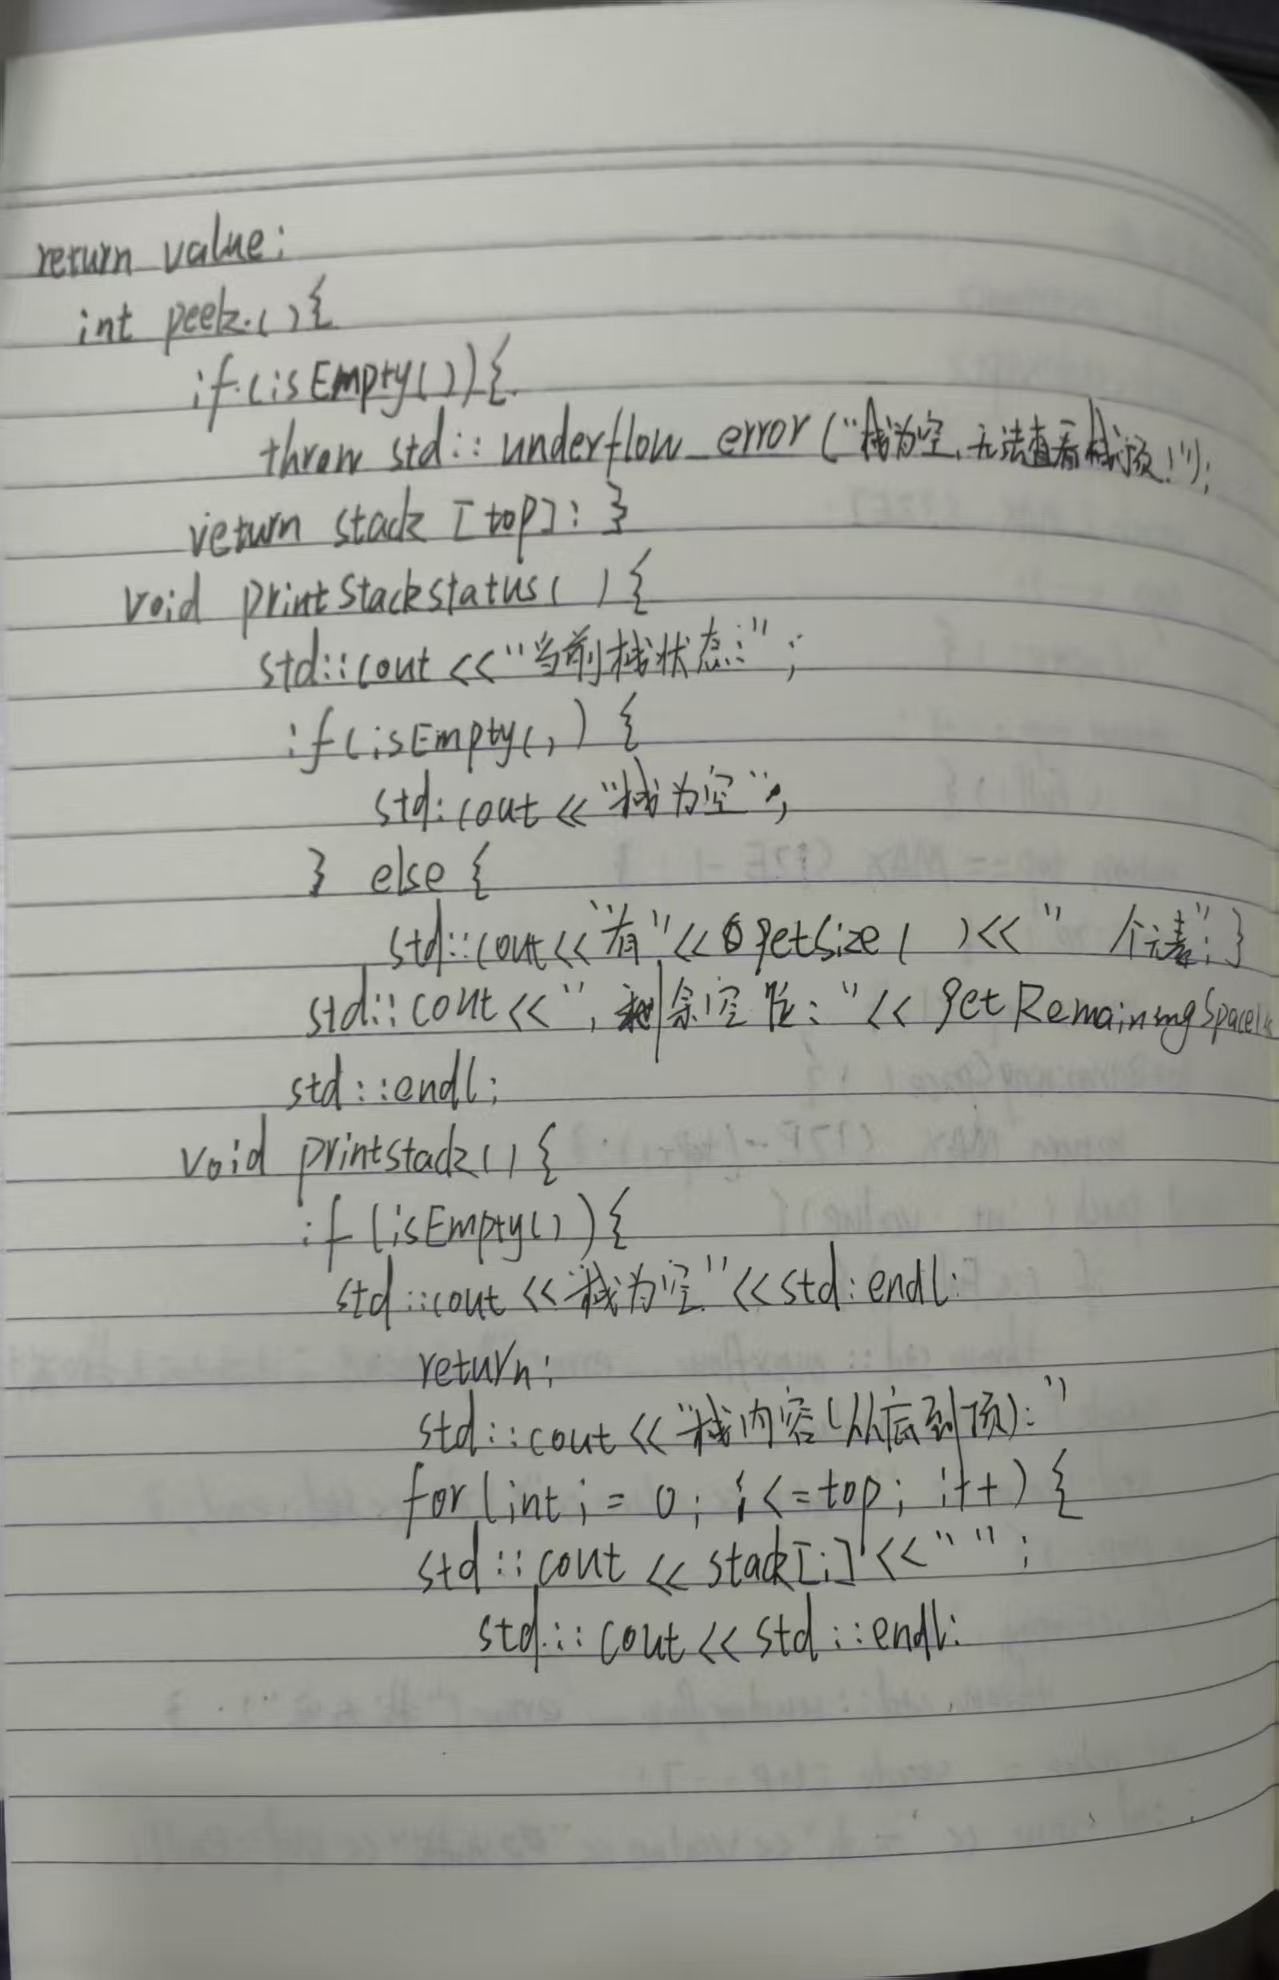 return value;
int peek(){
if(isEmpty()){
throw std::underflow_error("栈为空,无法查看栈顶!");
return stack[top]; }
void printStackstatus( ){
std::cout<<"当前栈状态:";
if(isEmpty()) {
std:cout<<"栈为空";
} else {
std::cout<<"有"<<getSize( )<<" 个元素"; }
std::cout<<", 剩余空间: "<<getRemainingSpace()<<
std::endl;
void printstack(){
if(isEmpty()){
std::cout<<"栈为空"<<std:endl;
return;
std::cout<<"栈内容(从底到顶):"
for(int i = 0; i<=top; i++) {
std::cout<<stack[i]<<" ";
std::cout<<std::endl;